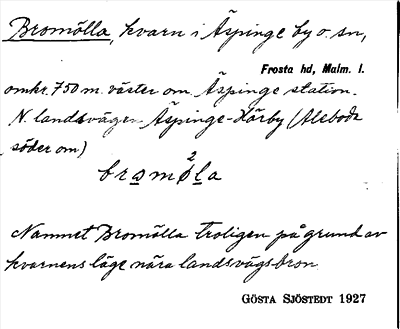 Bromölla, kvarn i Äspinge by o. sn,
Frosta hd, Malm. l.
omkr. 750 m. väster om Äspinge station.
N. landsvägen Äspinge-Hörby (Aleboda
söder om)
2
bromøla
Namnet Bromölla troligen på grund av
kvarnens läge nära landsvägsbron.
GÖSTA SJÖSTEDT 1927